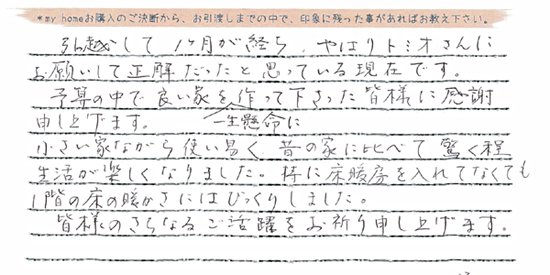 *my homeお購入のご決断から、お引渡しまでの中で、印象に残った事があればお教え下さい。
引越して1ヶ月が経ち、やはりトミオさんに
お願いして正解だったと思っている現在です。
予算の中で良い家を一生懸命に作って下さった皆様に感謝
申し上げます。
小さい家ながら使い易く昔の家に比べて驚く程
生活が楽しくなりました。特に床暖房を入れてなくても
1階の床の暖かさにはびっくりしました。
皆様のさらなるご活躍をお祈り申し上げます。